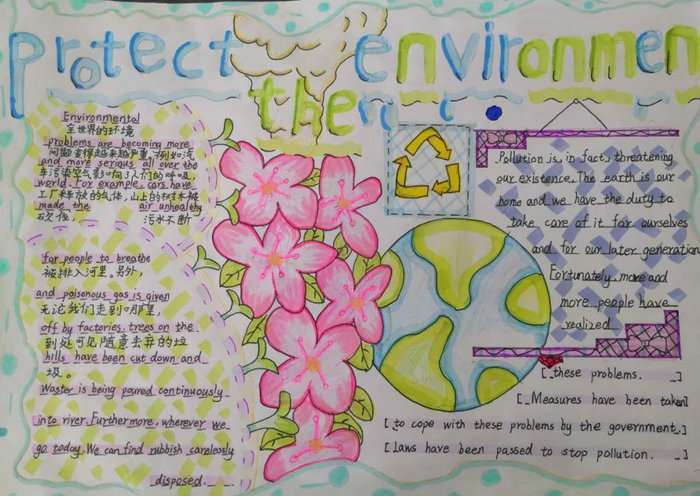 protect the environmen
Environmental
全世界的环境
problems are becoming more
问题变得越来越严重,例如汽
and more serious all over the
车污染空气影响了人们的呼吸
world. For example, cars have
工厂释放的气体,山上的树木被
made the air unhealhy
砍伐, 污水不断
for people to breathe
被排入河里,另外,
and poisonous gas is given
无论我们走到哪里,
off by factories. trees on the
到处可见随意丢弃的垃
hills have been cut down and
圾。
Waster is being poured continuously
into river. Furthermore, wherever we
go today. We can find rubbish carelessly
disposed.
Pollution is, in fact, threatening
our existence. The earth is our
home and we have the duty to
take care of it for ourselves
and for our later generation
Fortunately more and
more people have
realized
[ these problems. ]
[ Measures have been taken]
[ to cope with these problems by the government.]
[ laws have been passed to stop pollution. ]